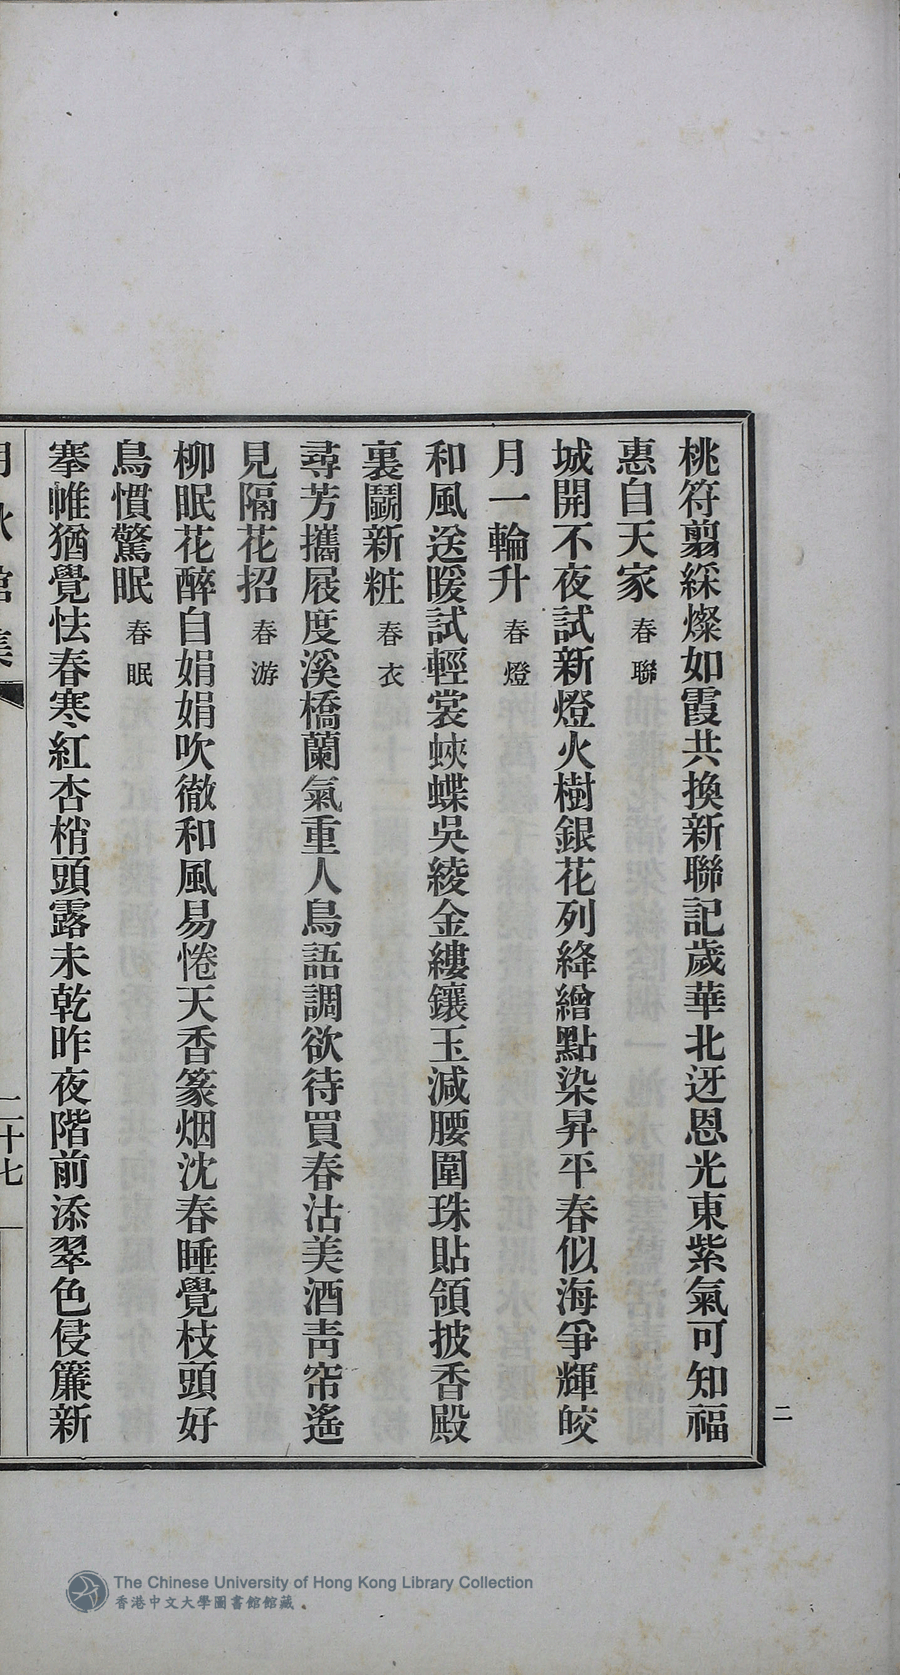 桃符翦綵燦如霞共換新聯記歲華北迓恩光東紫氣可知福
惠自天家春聯
城開不夜試新燈火樹銀花列絳繒點染昇平春似海爭輝皎
月一輪升春燈
和風送暖試輕裳蛺蝶吳綾金縷鑲玉減腰圍珠貼領披香殿
裏鬬新粧春衣
尋芳攜屐度溪橋蘭氣重人鳥語調欲待買春沽美酒靑帘遙
見隔花招春游
柳眠花醉自娟娟吹徹和風易倦天香篆烟沈春睡覺枝頭好
鳥慣驚眠春眠
搴帷猶覺怯春寒紅杏梢頭露未乾昨夜階前添翠色侵簾新
集
二十七
二
The Chinese University of Hong Kong Library Collection
香港中文大學圖書館館藏